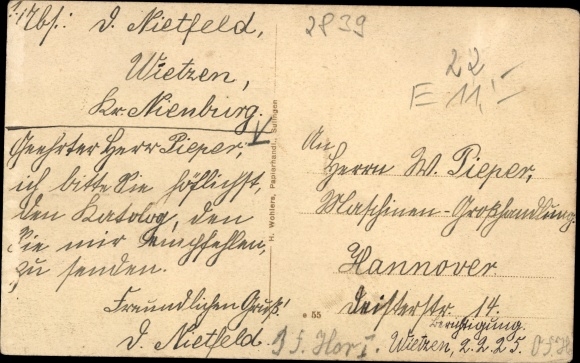 Abs: D. Nietfeld,
Wietzen,
Kr. Nienburg.
Geehrter Herr Pieper,
ich bitte Sie höflichst,
den Katolog, den
Sie mir empfehlen,
zu senden.
Freundlichen Gruß!
D. Nietfeld.
H. Wohlers, Papierhandl., Sulingen
2839
22
E 11,-
An
Herrn W. Pieper,
Maschinen-Großhandlung
Hannover
Deisterstr. 14.
55
Wietzen, 2.2.25.